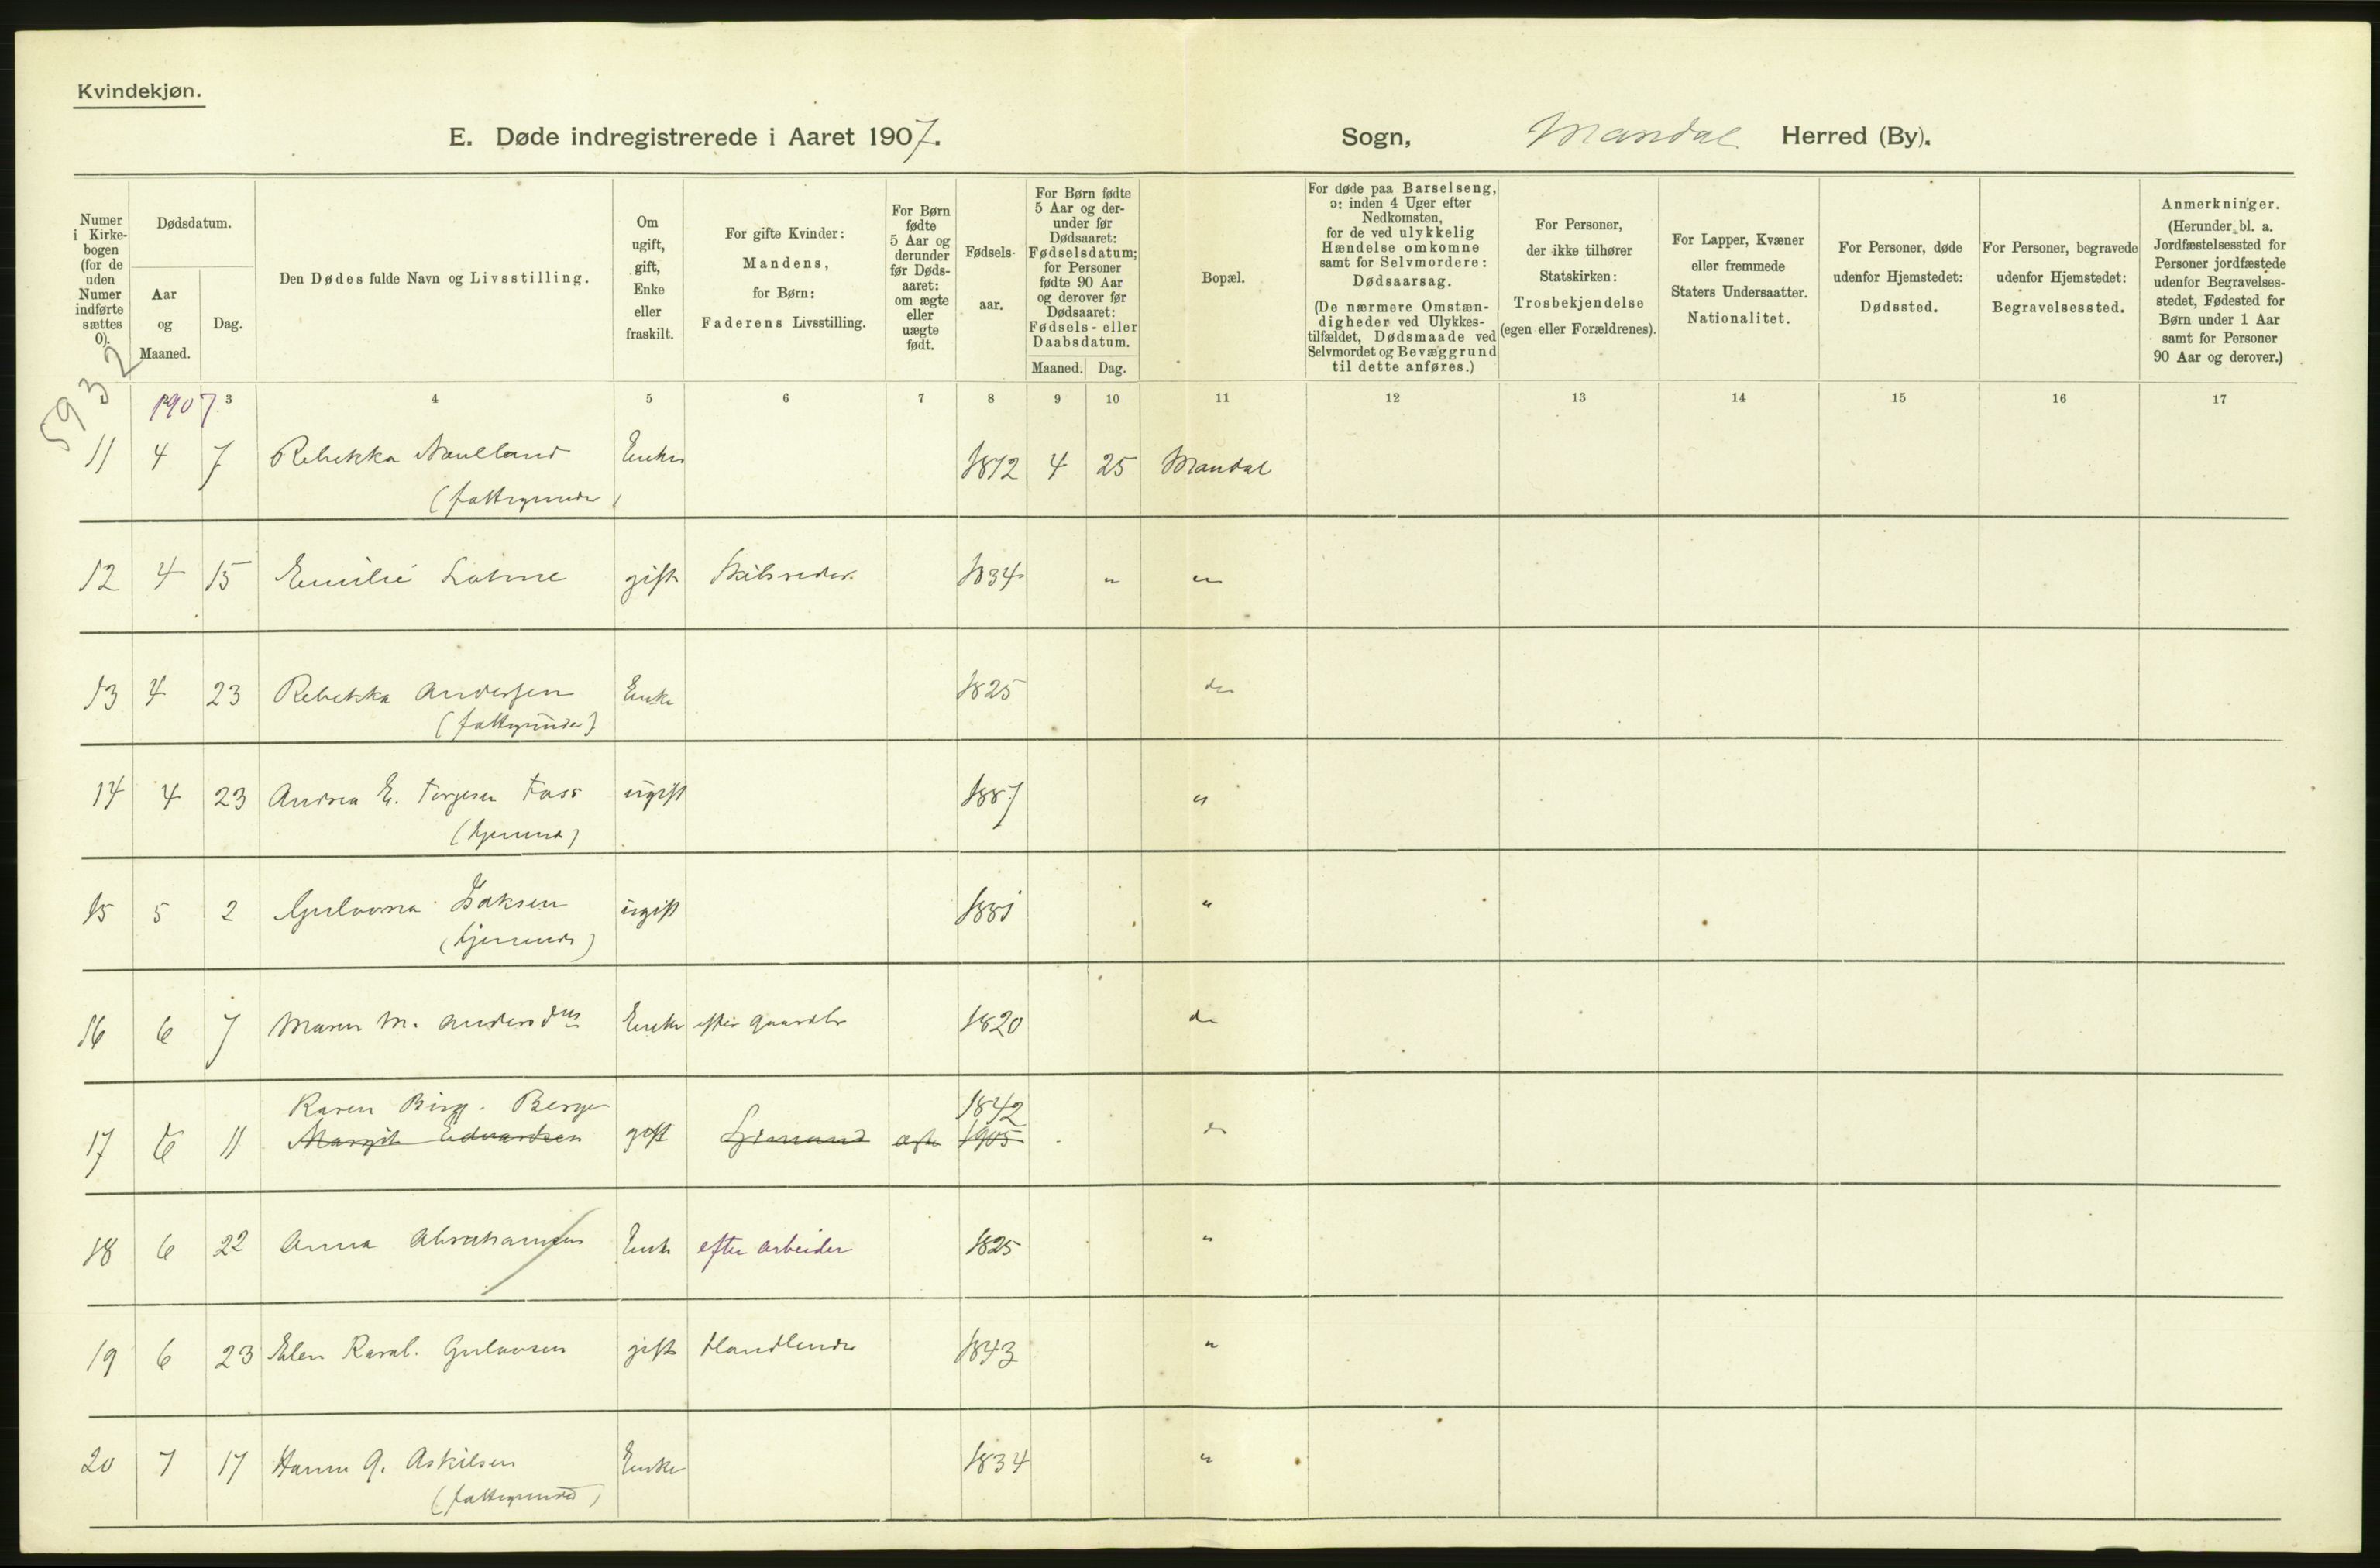 Kvindekjøn.
E. Døde indregistrerede i Aaret 1907. Sogn, Mandal Herred (By).
Numer i Kirkebogen (for de uden Numer indførte sættes 0).
Dødsdatum.
Aar og Maaned.
Dag.
Den Dødes fulde Navn og Livsstilling.
Om ugift, gift, Enke eller fraskilt.
For gifte Kvinder: Mandens, for Børn: Faderens Livsstilling.
For Børn fødte 5 Aar og derunder før Dødsaaret: om ægte eller uægte født.
Fødselsaar.
For Børn fødte 5 Aar og derunder før Dødsaaret: Fødselsdatum; for Personer fødte 90 Aar og derover før Dødsaaret: Fødsels- eller Daabsdatum.
Maaned. Dag.
Bopæl.
For døde paa Barselseng, ɔ: inden 4 Uger efter Nedkomsten, for de ved ulykkelig Hændelse omkomne samt for Selvmordere: Dødsaarsag.
(De nærmere Omstændigheder ved Ulykkestilfældet, Dødsmaade ved Selvmordet og Bevæggrund til dette anføres.)
For Personer, der ikke tilhører Statskirken: Trosbekjendelse (egen eller Forældrenes).
For Lapper, Kvæner eller fremmede Staters Undersaatter. Nationalitet.
For Personer, døde udenfor Hjemstedet: Dødssted.
For Personer, begravede udenfor Hjemstedet: Begravelsessted.
Anmerkninger. (Herunder bl. a. Jordfæstelsessted for Personer jordfæstede udenfor Begravelsesstedet, Fødested for Børn under 1 Aar samt for Personer 90 Aar og derover.)
5932
1907 3 4 5 6 7 8 9 10 11 12 13 14 15 16 17
11 4 7 Rebekka Enke 1812 4 25 Mandal
(fattigunder)
12 4 15 Emilie gift Skibsreder. 1834 " "
13 4 23 Rebekka Andersen Enke 1825 do
(fattigunder)
14 4 23 Andrea E. Torgesen Foss ugift 1887 "
(tjenende)
15 5 2 Gulovna Isaksen ugift 1881 "
(tjenende)
16 6 7 Maren M. Andersdtr Enke efter gaardbr 1820 do
Karen Birg. Berge 1842
17 6 11 Margit Edvardsen gift Sjømand ægte 1905 do
18 6 22 Anna Abrahamsen Enke efter arbeider 1825 "
19 6 23 Elen Raral. Gulovsen gift Handlende 1843 "
20 7 17 Hanne G. Askilsen Enke 1834 "
(fattigunder)